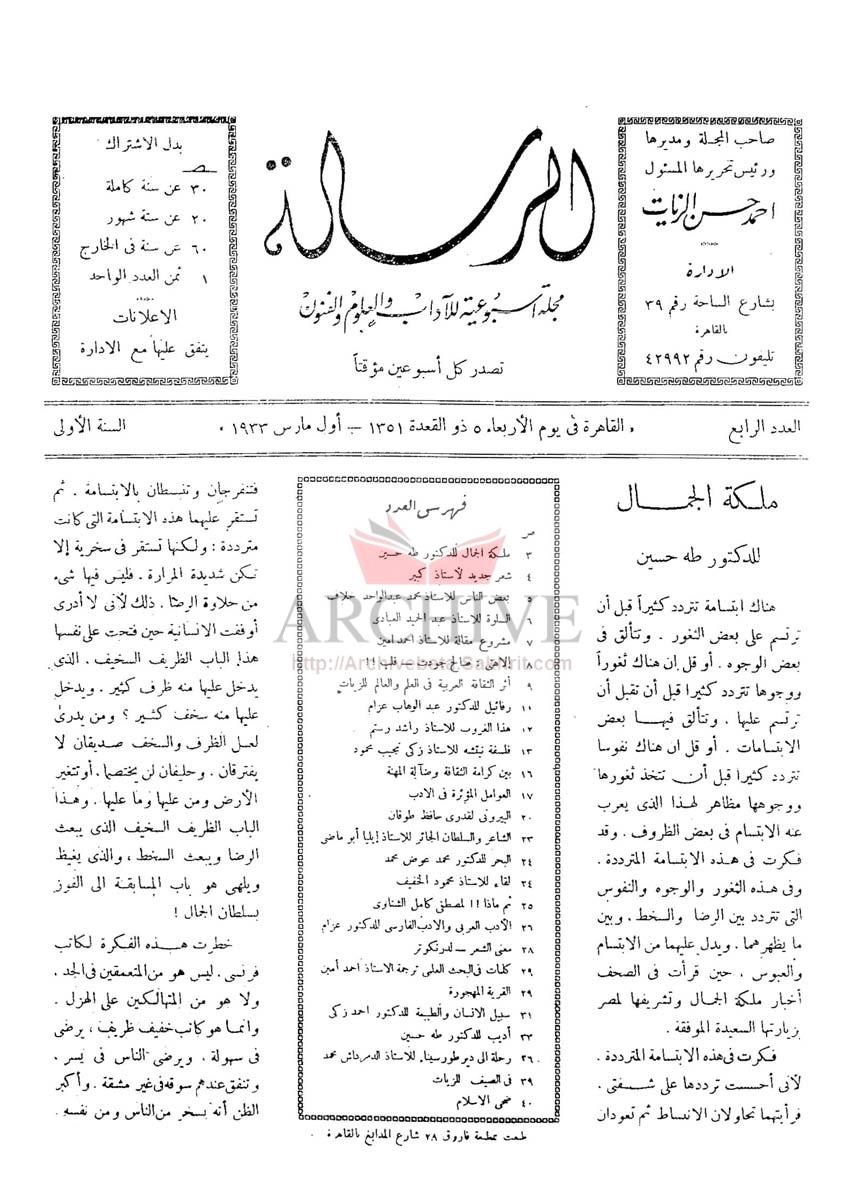 صاحب المجلة ومديرها
ورئيس تحريرها المسئول
احمد حسن الزيات
الادارة
بشارع الساحة رقم ٣٩
بالقاهرة
تليفون رقم ٤٢٩٩٢
الرسالة
مجلة اسبوعية للآداب والعلوم والفنون
تصدر كل أسبوعين مؤقتاً
بدل الاشتراك
ص
٣٠ عن سنة كاملة
٢٠ عن ستة شهور
٦٠ عن سنة فى الخارج
١ ثمن العدد الواحد
الاعلانات
يتفق عليها مع الادارة
العدد الرابع
« القاهرة فى يوم الأربعاء ٥ ذو القعدة ١٣٥١ — أول مارس ١٩٣٣ »
السنة الأولى
ملكة الجمال
للدكتور طه حسين
هناك ابتسامة تتردد كثيراً قبل أن
ترتسم على بعض الثغور . وتتألق فى
بعض الوجوه . أو قل إن هناك ثغوراً
ووجوها تتردد كثيرا قبل أن تقبل أن
ترتسم عليها . وتتألق فيها بعض
الابتسامات . أو قل ان هناك نفوسا
تتردد كثيرا قبل أن تتخذ ثغورها
ووجوهها مظاهر لهذا الذى يعرب
عنه الابتسام فى بعض الظروف . وقد
فكرت فى هذه الابتسامة المترددة .
وفى هذه الثغور والوجوه والنفوس
التى تتردد بين الرضا والسخط . وبين
ما يظهرهما . ويدل عليهما من الابتسام
والعبوس . حين قرأت فى الصحف
أخبار ملكة الجمال وتشريفها لمصر
بزيارتها السعيدة الموفقة .
فكرت فى هذه الابتسامة المترددة .
لأنى أحسست ترددها على شفتى .
فرأيتهما تحاولان الانبساط ثم تعودان
فهرس العدد
ص
٣ ملكة الجمال للدكتور طه حسين
٤ شعر جديد لأستاذ كبير
٥ بعض الناس للاستاذ محمد عبدالواحد خلاف
٦ السلوة للاستاذ عبد الحميد العبادى
٧ مشروع مقالة للاستاذ احمد امين
٨ صالح جودت — قلب !!
٩ أثر الثقافة العربية فى العلم والعالم للزيات
١١ رفائيل للدكتور عبد الوهاب عزام
١٢ هذا الغروب للاستاذ راشد رستم
١٣ فلسفة نيتشه للاستاذ زكى نجيب محمود
١٦ بين كرامة الثقافة وضآلة المهنة
١٧ العوامل المؤثرة فى الادب
٢٠ البيرونى لقدرى حافظ طوقان
٢٣ الشاعر والسلطان الجائر للاستاذ إيليا أبو ماضى
٢٤ البحر للدكتور محمد عوض محمد
٢٤ لقاء للاستاذ محمود الخفيف
٢٥ ثم ماذا !! لمصطفى كامل الشناوى
٢٦ الأدب العربى والادب الفارسى للدكتور عزام
٢٨ معنى الشعر — لدرنكوتر
٢٩ كلمات فى البحث العلمى ترجمة الاستاذ احمد أمين
٢٩ القرية المهجورة
٣١ سبيل الانسان والطبيعة للدكتور احمد زكى
٣٣ أديب للدكتور طه حسين
٣٦ رحلة الى دير طورسيناء للاستاذ الدمرداش محمد
٣٩ فى الصيف للزيات
٤٠ ضحى الاسلام
طبعت بمطبعة فاروق ٢٨ شارع المدابغ بالقاهرة
فتنفرجان وتنبسطان بالابتسامة . ثم
تستقر عليهما هذه الابتسامة التى كانت
مترددة : ولكنها تستقر فى سخرية إلا
تكن شديدة المرارة . فليس فيها شىء
من حلاوة الرضا . ذلك لأنى لا أدرى
أوفقت الانسانية حين فتحت على نفسها
هذا الباب الظريف السخيف . الذى
يدخل عليها منه ظرف كثير . ويدخل
عليها منه سخف كثير ؟ ومن يدرى
لعل الظرف والسخف صديقان لا
يفترقان . وحليفان لن يختصما . أو تتغير
الأرض ومن عليها وما عليها . وهذا
الباب الظريف السخيف الذى يبعث
الرضا ويبعث السخط ، والذى يغيظ
ويلهى هو باب المسابقة الى الفوز
بسلطان الجمال !
خطرت هذه الفكرة لكاتب
فرنسى . ليس هو من المتعمقين فى الجد .
ولا هو من المتهالكين على الهزل .
وانما هو كاتب خفيف ظريف ، يرضى
فى سهولة . ويرضى الناس فى يسر .
وتنفق عندهم سوقه فى غير مشقة . وأكبر
الظن أنه يسخر من الناس ومن نفسه .
ARCHIVE
http://Archivebeta.Sakhrit.com